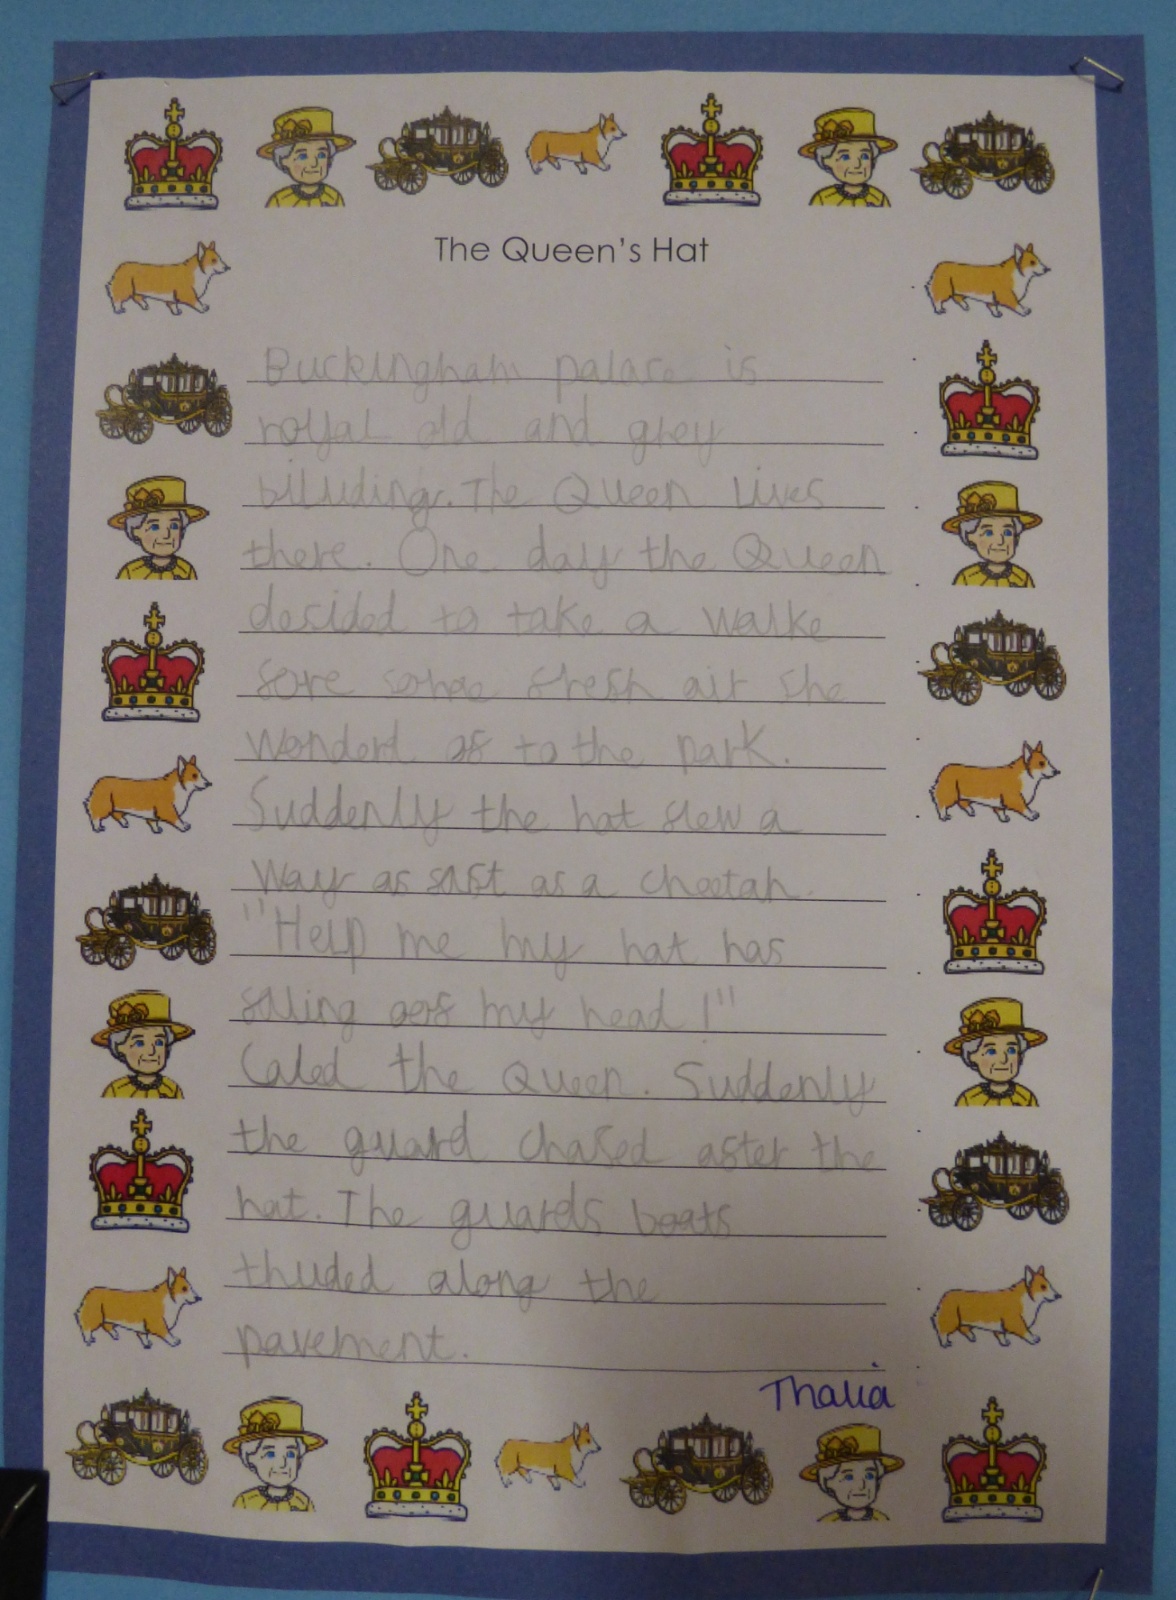 The Queen's Hat
Buckingham palace is
royal old and grey
biluding. The Queen Lives
there. One day the Queen
desided to take a walke
fore some fresh air she
wonderd of to the park.
Suddenly the hat flew a
way as fast as a cheetah.
"Help me my hat has
falling off my head !"
Caled the Queen. Suddenly
the guard chased after the
hat. The guards boots
thuded along the
pavement.
Thalia